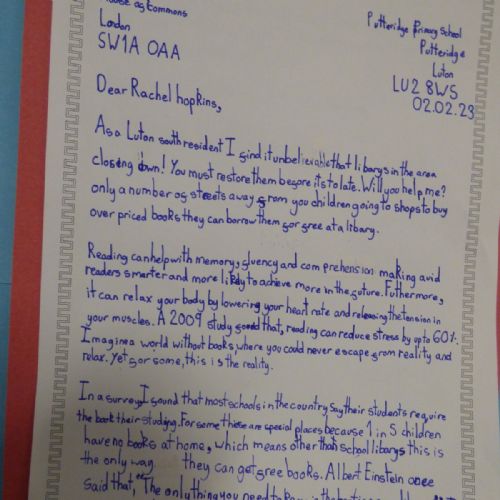 House of Commons
London
SW1A OAA
Putteridge Primary School
Putteridge
Luton
LU2 8WS
02.02.23
Dear Rachel Hopkins,
As a Luton south resident I find it unbelievable that libarys in the area
closeing down! You must restore them before its to late. Will you help me?
only a number of streets away from you children going to shops to buy
over priced books they can borrow them for free at a libary.
Reading can help with memory, fluency and comprehension making avid
readers smarter and more likely to achieve more in the future. Futhermore,
it can relax your body by lowering your heart rate and releasing the tension in
your muscles. A 2009 study found that, reading can reduce stress by up to 60%.
Imagine a world without books where you could never escape from reality and
relax. Yet for some, this is the reality.
In a survey I found that most schools in the country say their students require
the book their studing. For some these are special places because 1 in 5 children
have no books at home, which means other than school libarys this is
the only way they can get free books. Albert Einstein once
said that, "The only thing you need to know is the